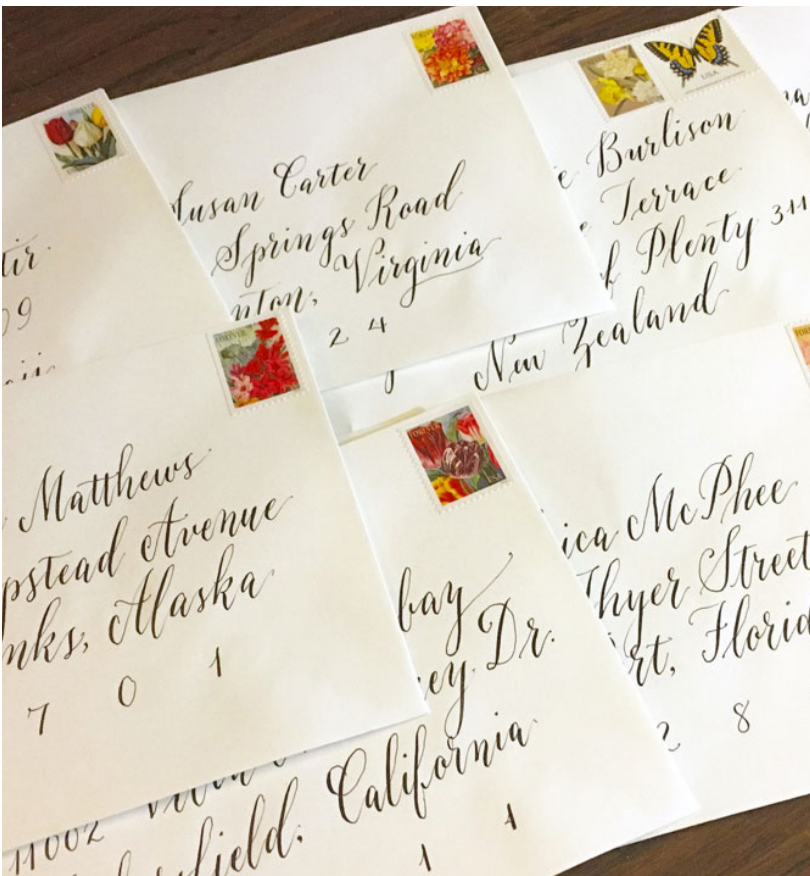 FOREVER
tir.
09
FOREVER
Susan Carter
Springs Road
nton, Virginia
2 4
USA
e Burlison
e Terrace
of Plenty 311
New Zealand
FOREVER
Matthews
pstead Avenue
nks, Alaska
7 0 1
FOREVER
bay
ey Dr.
11002
field, California
1 1
ica McPhee
Thyer Street
rt, Florid
2 8